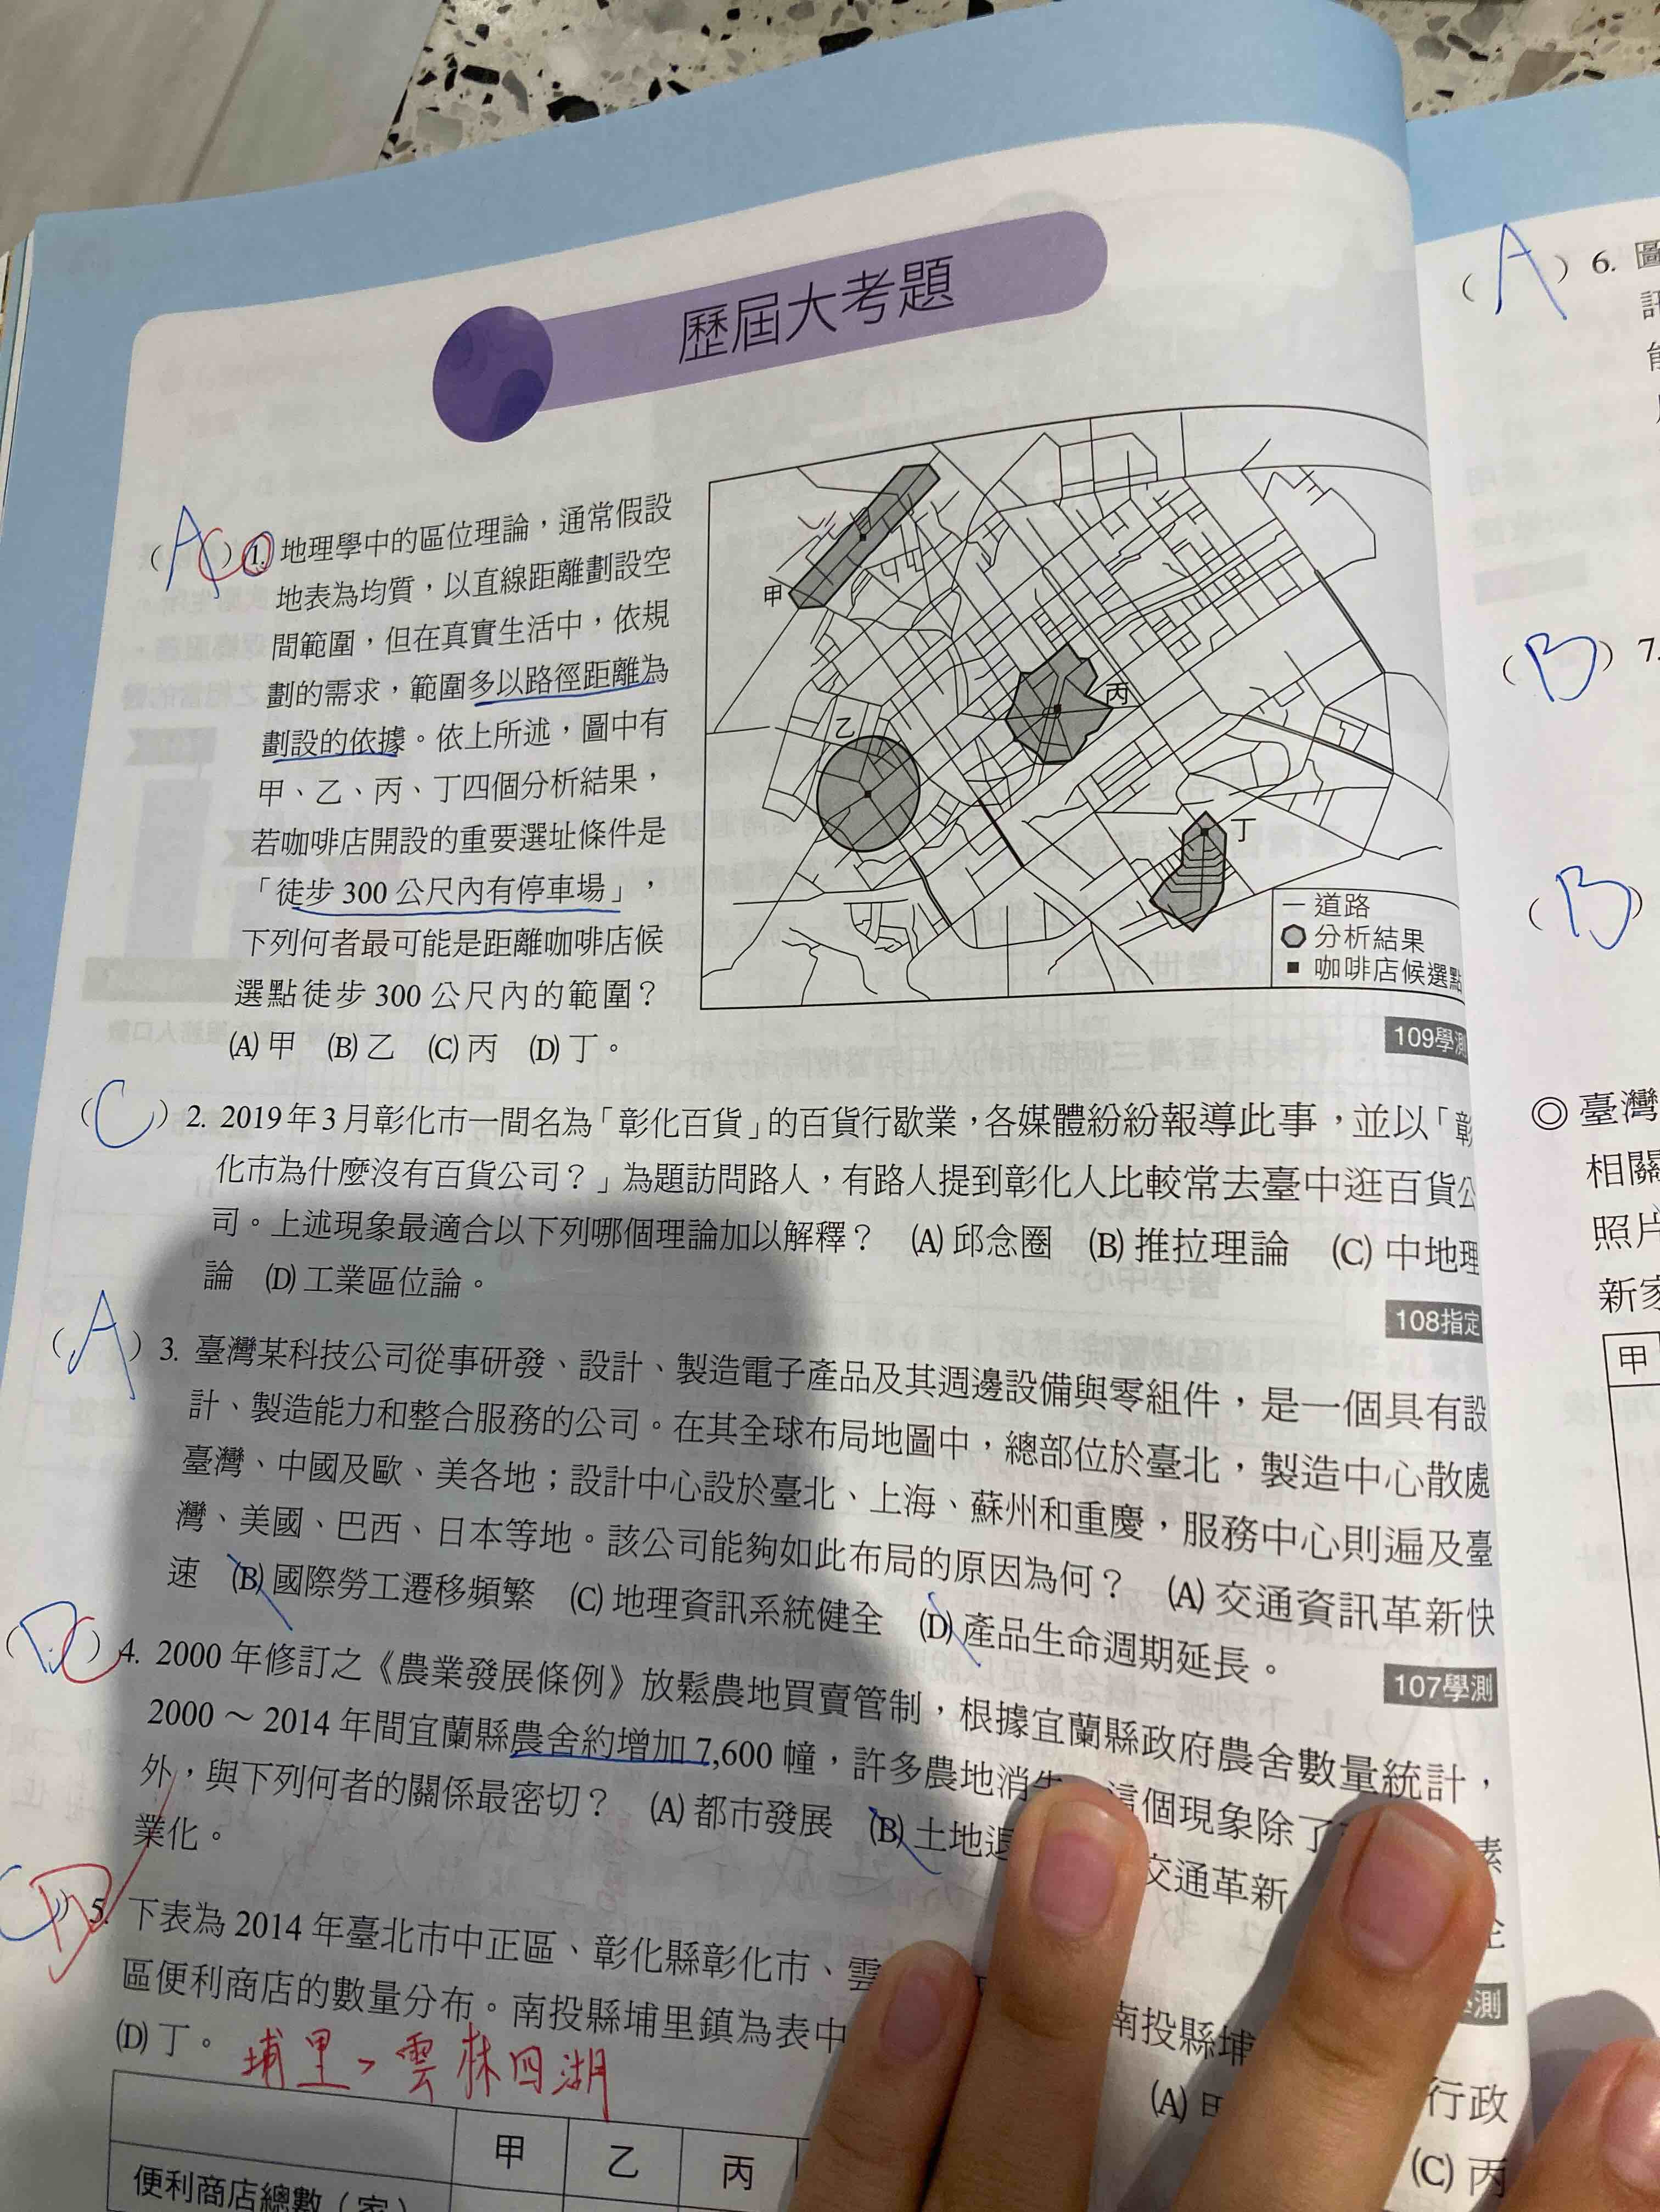 歷屆大考題
(A C) 1. 地理學中的區位理論，通常假設
地表為均質，以直線距離劃設空
間範圍，但在真實生活中，依規
劃的需求，範圍多以路徑距離為
劃設的依據。依上所述，圖中有
甲、乙、丙、丁四個分析結果，
若咖啡店開設的重要選址條件是
「徒步 300 公尺內有停車場」，
下列何者最可能是距離咖啡店候
選點徒步 300 公尺內的範圍？
(A) 甲 (B) 乙 (C) 丙 (D) 丁。
甲
乙
丙
丁
道路
分析結果
咖啡店候選點
109學測
(C) 2. 2019 年 3 月彰化市一間名為「彰化百貨」的百貨行歇業，各媒體紛紛報導此事，並以「彰
化市為什麼沒有百貨公司？」為題訪問路人，有路人提到彰化人比較常去臺中逛百貨公
司。上述現象最適合以下列哪個理論加以解釋？ (A) 邱念圈 (B) 推拉理論 (C) 中地理
論 (D) 工業區位論。
108指定
(A) 3. 臺灣某科技公司從事研發、設計、製造電子產品及其週邊設備與零組件，是一個具有設
計、製造能力和整合服務的公司。在其全球布局地圖中，總部位於臺北，製造中心散處
臺灣、中國及歐、美各地；設計中心設於臺北、上海、蘇州和重慶，服務中心則遍及臺
灣、美國、巴西、日本等地。該公司能夠如此布局的原因為何？ (A) 交通資訊革新快
速 (B) 國際勞工遷移頻繁 (C) 地理資訊系統健全 (D) 產品生命週期延長。
107學測
(D C) 4. 2000 年修訂之《農業發展條例》放鬆農地買賣管制，根據宜蘭縣政府農舍數量統計，
2000～2014 年間宜蘭縣農舍約增加 7,600 幢，許多農地消失 這個現象除了 素
外，與下列何者的關係最密切？ (A) 都市發展 (B) 土地退 交通革新
業化。
學測
D 5. 下表為 2014 年臺北市中正區、彰化縣彰化市、雲 南投縣埔 行政
區便利商店的數量分布。南投縣埔里鎮為表中 (A) 甲 (C) 丙
(D) 丁。 埔里＞雲林四湖
甲 乙 丙
便利商店總數（家）
(A) 6. 圖
(B) 7.
(B)
◎ 臺灣
相關
照片
新家
甲